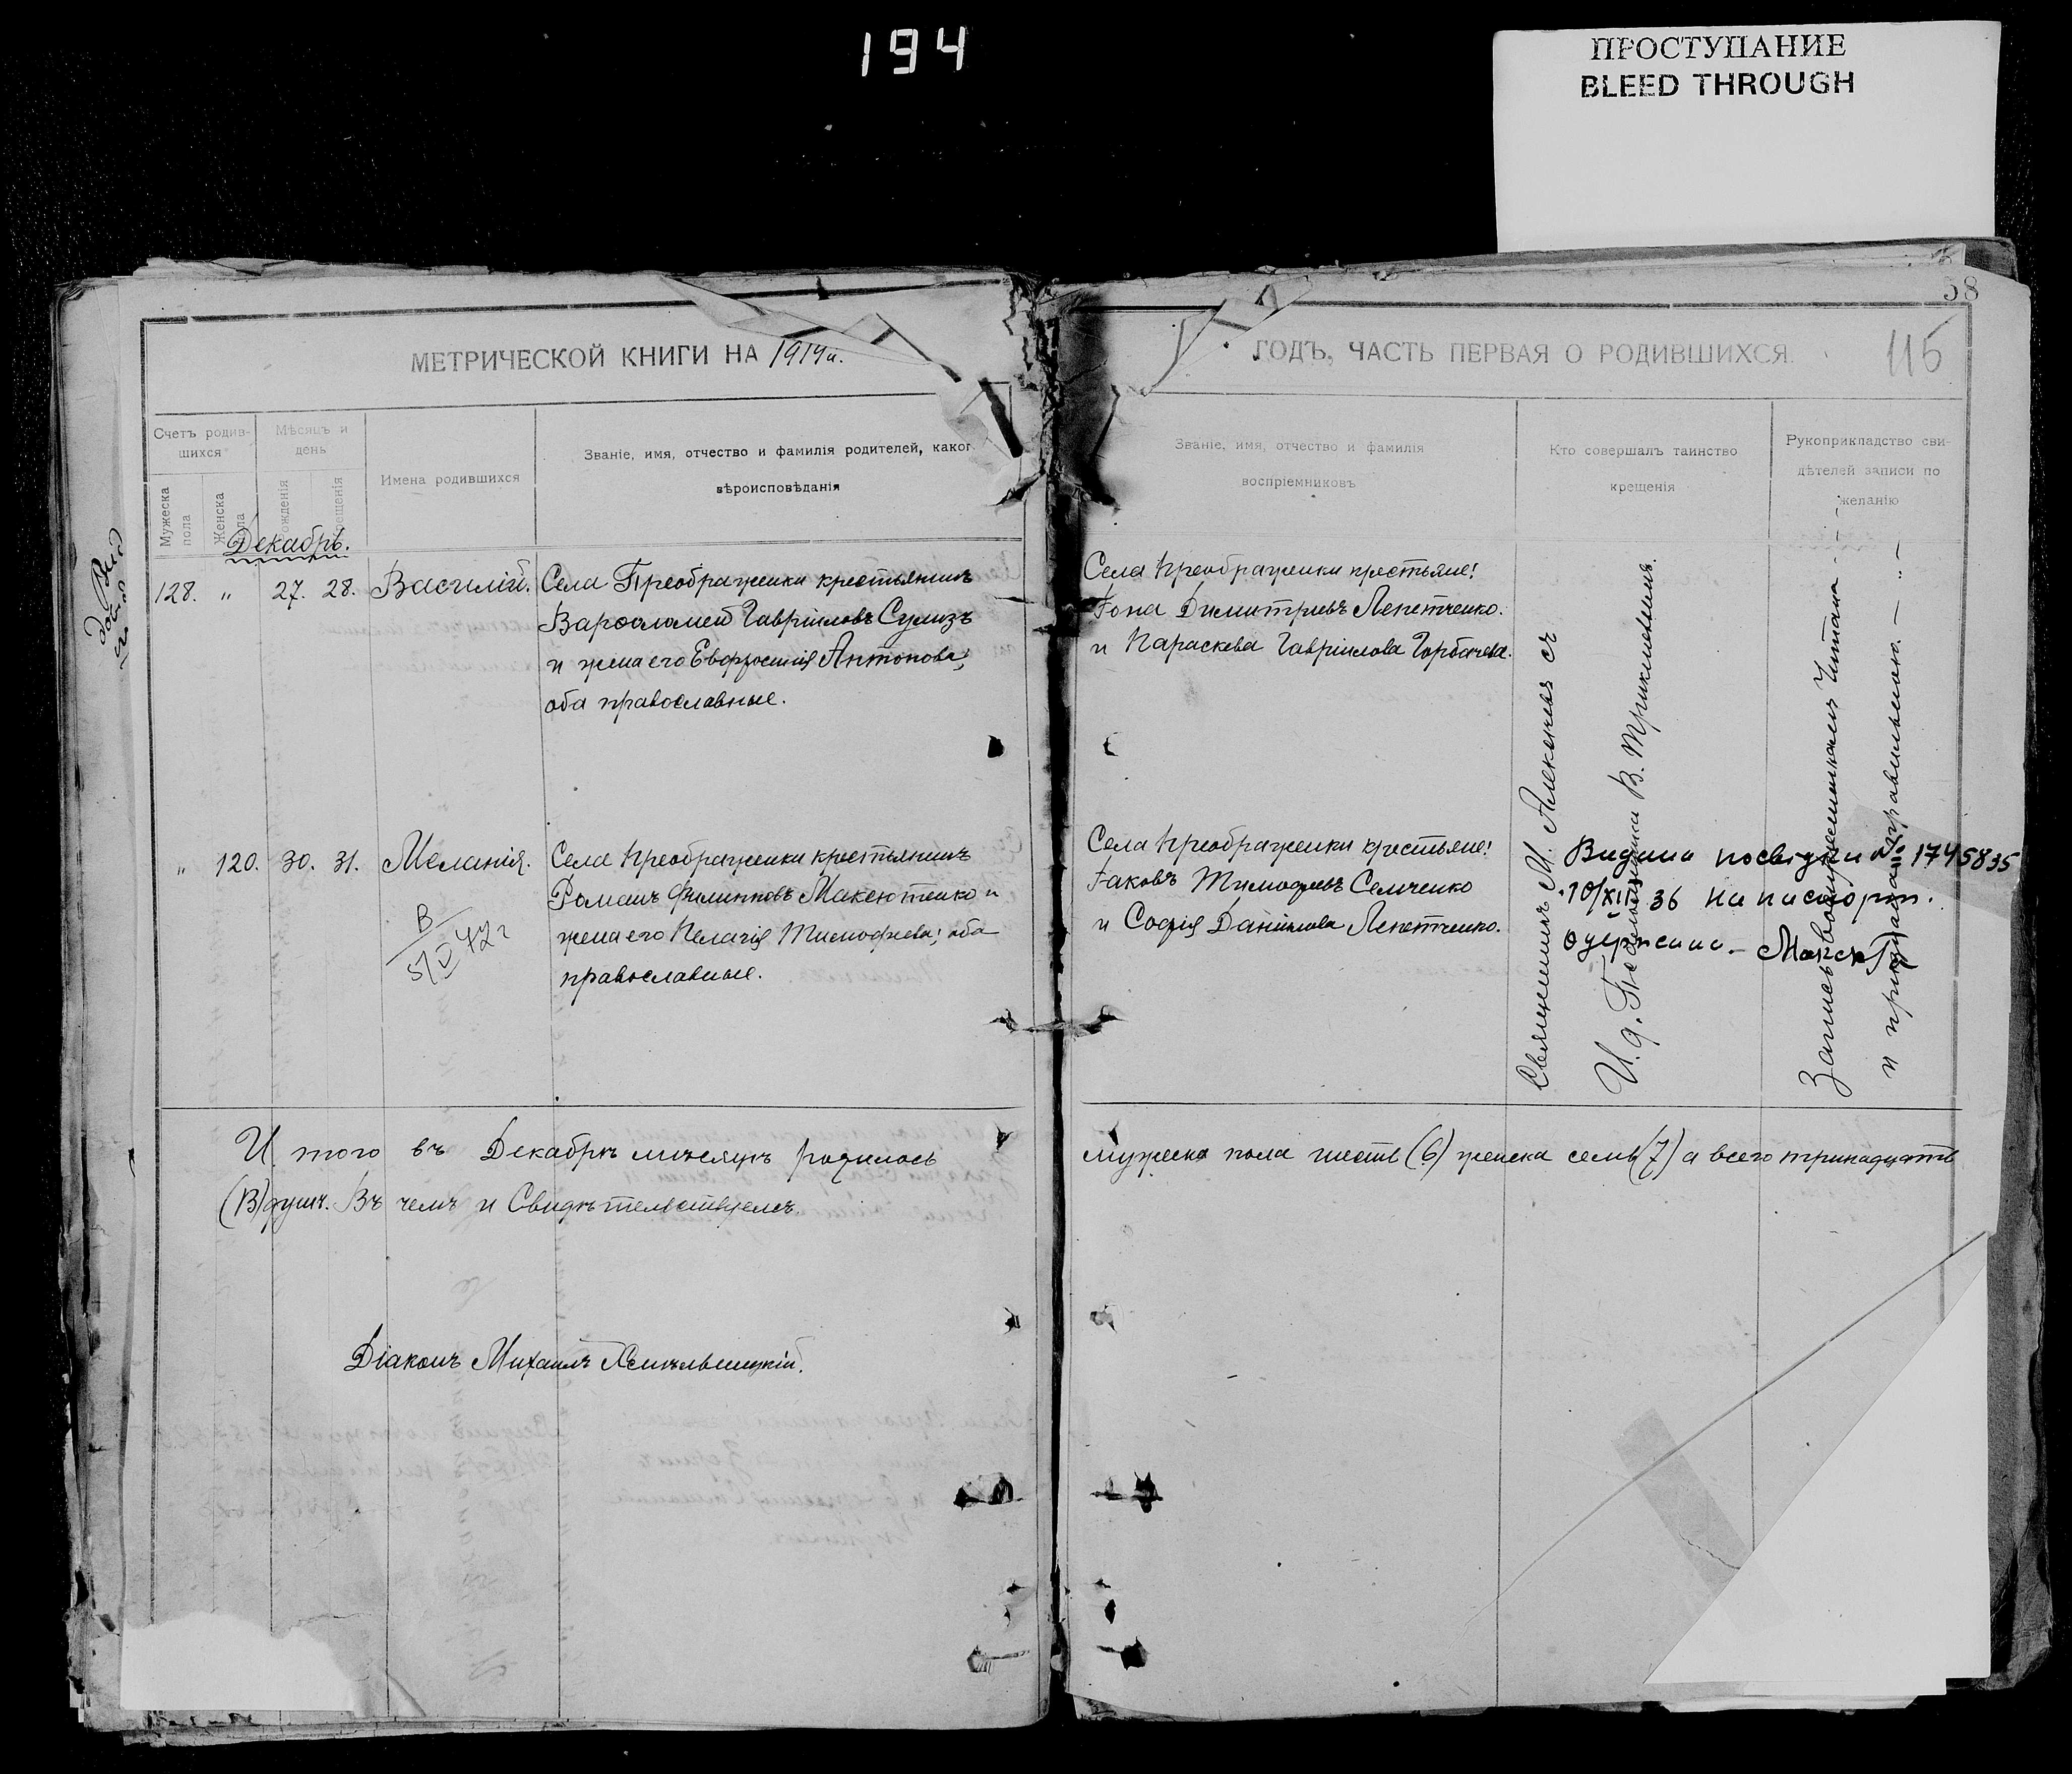 194
ПРОСТУПАНИЕ
BLEED THROUGH
58
МЕТРИЧЕСКОЙ КНИГИ НА 1914й.
ГОДЪ, ЧАСТЬ ПЕРВАЯ О РОДИВШИХСЯ.
115
Счетъ родив-
шихся
Мѣсяцъ и
день
Мужеска
пола
Женска
пола
Имена родившихся
Званіе, имя, отчество и фамилія родителей, каког
вѣроисповѣданія
Званіе, имя, отчество и фамилія
воспріемниковъ
Кто совершалъ таинство
крещенія
Рукоприкладство сви-
дѣтелей записи по
желанію
Декабрь.
128. " 27. 28. Василій.
Села Преображенки крестьянинъ
Варѳоломей Гавріиловъ
и жена его Евфросинія Антонова,
оба православные.
Села Преображенки крестьяне:
Іона Димитріевъ Лепетченко.
и Параскева Гавріилова Горбачева.
" 120. 30. 31. Меланія.
Села Преображенки крестьянинъ
Романъ Филипповъ Максютенко и
жена его Пелагія Тимофеева; оба
православные.
В
5/II 42 г
Села Преображенки крестьяне:
Іаковъ Тимофеевъ Семченко
и Софія Даніилова Лепетченко.
Священникъ М. Алексѣевъ съ
И. д. Псаломщика В.
Запись воспріемникамъ читана
и признана правильною.
Видана посвідки № 1745835
10/XII 36 на паспорт.
одержано.
И того въ Декабрѣ мѣсяцѣ родилось
мужеска пола шесть (6) женска семь (7) а всего тринадцать
(13) душъ. Въ чемъ и Свидѣтельствуемъ
Діаконъ Михаилъ